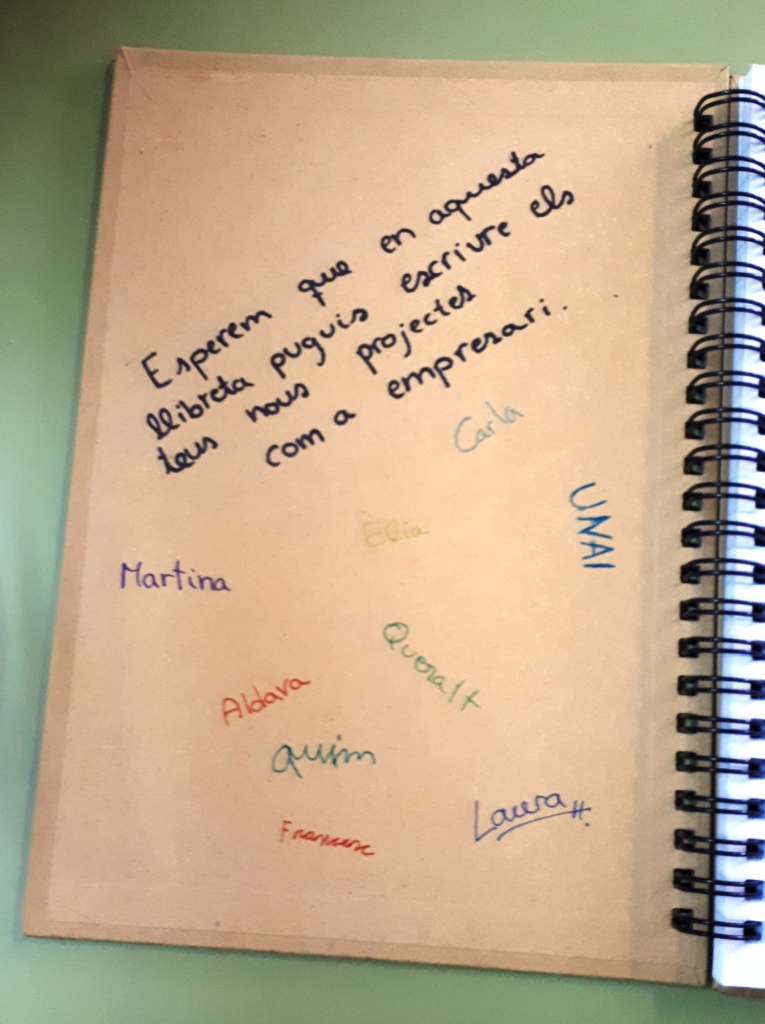 Esperem que en aquesta
llibreta puguis escriure els
teus nous projectes
com a empresari.
Carla
UNAI
Èlia
Martina
Queralt
Aldara
Quim
Laura H.
Francesc